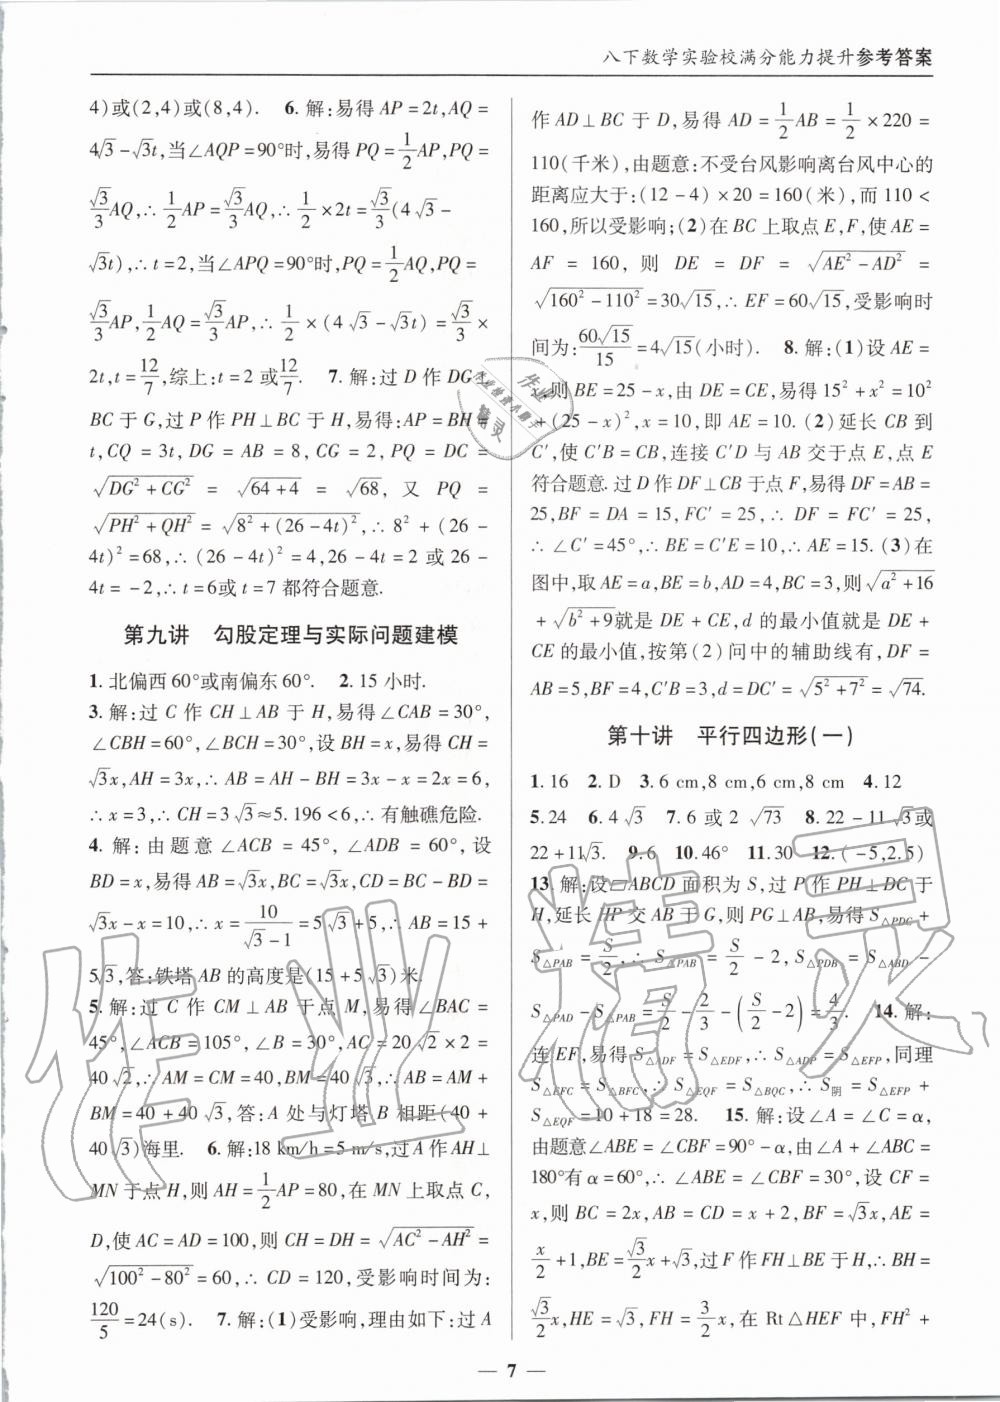 八下数学实验校满分能力提升参考答案
4)或(2,4)或(8,4). 6. 解:易得 AP=2t,AQ=
4√3-√3t,当∠AQP=90°时,易得 PQ=1/2AP,PQ=
√3/3AQ,∴1/2AP=√3/3AQ,∴1/2×2t=√3/3(4√3-
√3t),∴t=2,当∠APQ=90°时,PQ=1/2AQ,PQ=
√3/3AP,1/2AQ=√3/3AP,∴1/2×(4√3-√3t)=√3/3×
2t,t=12/7,综上:t=2 或12/7. 7. 解:过 D 作 DG⊥
BC 于 G,过 P 作 PH⊥BC 于 H,易得:AP=BH=
t,CQ=3t,DG=AB=8,CG=2,PQ=DC=
√(DG²+CG²)=√(64+4)=√68,又 PQ=
√(PH²+QH²)=√(8²+(26-4t)²),∴8²+(26-
4t)²=68,∴(26-4t)²=4,26-4t=2 或 26-
4t=-2,∴t=6或 t=7 都符合题意.
第九讲 勾股定理与实际问题建模
1. 北偏西 60°或南偏东 60°. 2. 15 小时.
3. 解:过 C 作 CH⊥AB 于 H,易得∠CAB=30°,
∠CBH=60°,∠BCH=30°,设 BH=x,易得 CH=
√3x,AH=3x,∴AB=AH-BH=3x-x=2x=6,
∴x=3,∴CH=3√3≈5.196<6,∴有触礁危险.
4. 解:由题意∠ACB=45°,∠ADB=60°,设
BD=x,易得 AB=√3x,BC=√3x,CD=BC-BD=
√3x-x=10,∴x=10/(√3-1)=5√3+5,∴AB=15+
5√3,答:铁塔 AB 的高度是(15+5√3)米.
5. 解:过 C 作 CM⊥AB 于点 M,易得∠BAC=
45°,∠ACB=105°,∠B=30°,AC=20√2×2=
40√2,∴AM=CM=40,BM=40√3,∴AB=AM+
BM=40+40√3,答:A 处与灯塔 B 相距(40+
40√3)海里. 6. 解:18 km/h=5 m/s,过 A 作 AH⊥
MN 于点 H,则 AH=1/2AP=80,在 MN 上取点 C,
D,使 AC=AD=100,则 CH=DH=√(AC²-AH²)=
√(100²-80²)=60,∴CD=120,受影响时间为:
120/5=24(s). 7. 解:(1)受影响,理由如下:过 A
作 AD⊥BC 于 D,易得 AD=1/2AB=1/2×220=
110(千米),由题意:不受台风影响离台风中心的
距离应大于:(12-4)×20=160(米),而 110<
160,所以受影响;(2)在 BC 上取点 E,F,使 AE=
AF=160,则 DE=DF=√(AE²-AD²)=
√(160²-110²)=30√15,∴EF=60√15,受影响时
间为:60√15/15=4√15(小时). 8. 解:(1)设 AE=
x,则 BE=25-x,由 DE=CE,易得 15²+x²=10²
+(25-x)²,x=10,即 AE=10. (2)延长 CB 到
C′,使 C′B=CB,连接 C′D 与 AB 交于点 E,点 E
符合题意. 过 D 作 DF⊥CB 于点 F,易得 DF=AB=
25,BF=DA=15,FC′=25,∴DF=FC′=25,
∴∠C′=45°,∴BE=C′E=10,∴AE=15. (3)在
图中,取 AE=a,BE=b,AD=4,BC=3,则√(a²+16)
+√(b²+9)就是 DE+CE,d 的最小值就是 DE+
CE 的最小值,按第(2)问中的辅助线有,DF=
AB=5,BF=4,C′B=3,d=DC′=√(5²+7²)=√74.
第十讲 平行四边形(一)
1. 16 2. D 3. 6 cm,8 cm,6 cm,8 cm 4. 12
5. 24 6. 4√3 7. 6 或 2√73 8. 22-11√3或
22+11√3. 9. 6 10. 46° 11. 30 12. (-5,2.5)
13. 解:设▱ABCD 面积为 S,过 P 作 PH⊥DC 于
H,延长 HP 交 AB 于 G,则 PG⊥AB,易得 S△PDC+
S△PAB=S/2,∴S△PAB=S/2-2,∴S△PDB=S△ABD-
S△PAD-S△PAB=S/2-2/3-(S/2-2)=4/3. 14. 解:
连 EF,易得 S△ADF=S△EDF,∴S△ADP=S△EFP,同理
S△EFC=S△BFC,∴S△EQF=S△BQC,∴S阴=S△EFP+
S△EQF=10+18=28. 15. 解:设∠A=∠C=α,
由题意∠ABE=∠CBF=90°-α,由∠A+∠ABC=
180°有 α=60°,∴∠ABE=∠CBF=30°,设 CF=
x,则 BC=2x,AB=CD=x+2,BF=√3x,AE=
x/2+1,BE=√3/2x+√3,过 F 作 FH⊥BE 于 H,∴BH=
√3/2x,HE=√3,FH=3/2x,在 Rt△HEF 中,FH²+
— 7 —
作业精灵